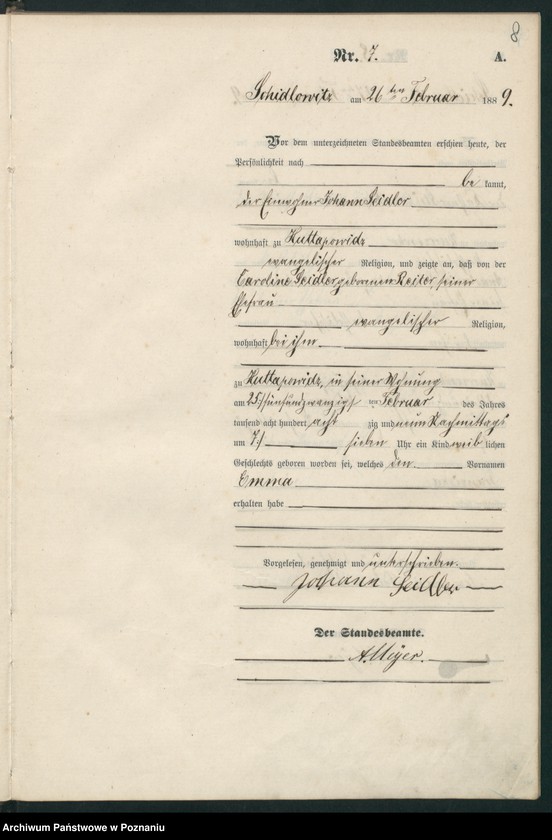 8
Nr. 7. A.
Schidlowitz am 26 ten Februar 1889.
Vor dem unterzeichneten Standesbeamten erschien heute, der
Persönlichkeit nach
be kannt,
der Einwohner Johann Seidler
wohnhaft zu Huttapowidz
evangelischer Religion, und zeigte an, daß von der
Caroline Seidler geborenen Reiter, seiner
Ehefrau
evangelischer Religion,
wohnhaft bei ihm
zu Huttapowidz, in seiner Wohnung
am 25/fünfundzwanzigst/ ten Februar des Jahres
tausend acht hundert acht zig und neun Nachmittags
um 7/ sieben Uhr ein Kind weib lichen
Geschlechts geboren worden sei, welches den Vornamen
Emma
erhalten habe
Vorgelesen, genehmigt und unterschrieben.
Johann Seidler
Der Standesbeamte.
Archiwum Państwowe w Poznaniu